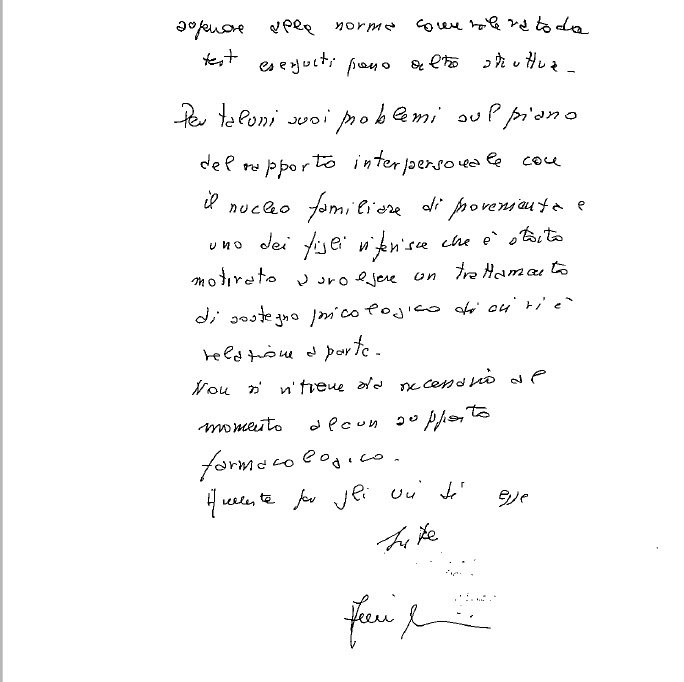 superiore alla norma come rilevato da
test eseguiti presso altra struttura -
Per taluni suoi problemi sul piano
del rapporto interpersonale con
il nucleo familiare di provenienza e
uno dei figli riferisce che è stato
motivato a svolgere un trattamento
di sostegno psicologico di cui vi è
relazione a parte.
Non si ritiene sia necessario al
momento alcun supporto
farmacologico.
per gli usi